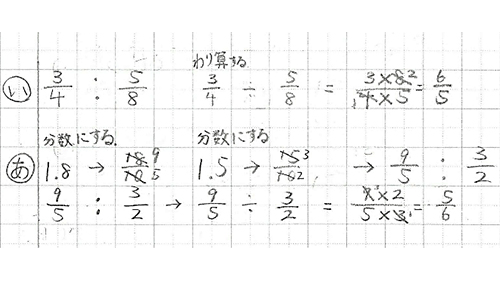 わり算する
い 3/4 : 5/8 3/4 ÷ 5/8 = 3×8 2/1 4×5 = 6/5
分数にする. 分数にする
あ 1.8 → 18 9/10 5 1.5 → 15 3/10 2 → 9/5 : 3/2
9/5 : 3/2 → 9/5 ÷ 3/2 = 9×2/5×3 = 5/6